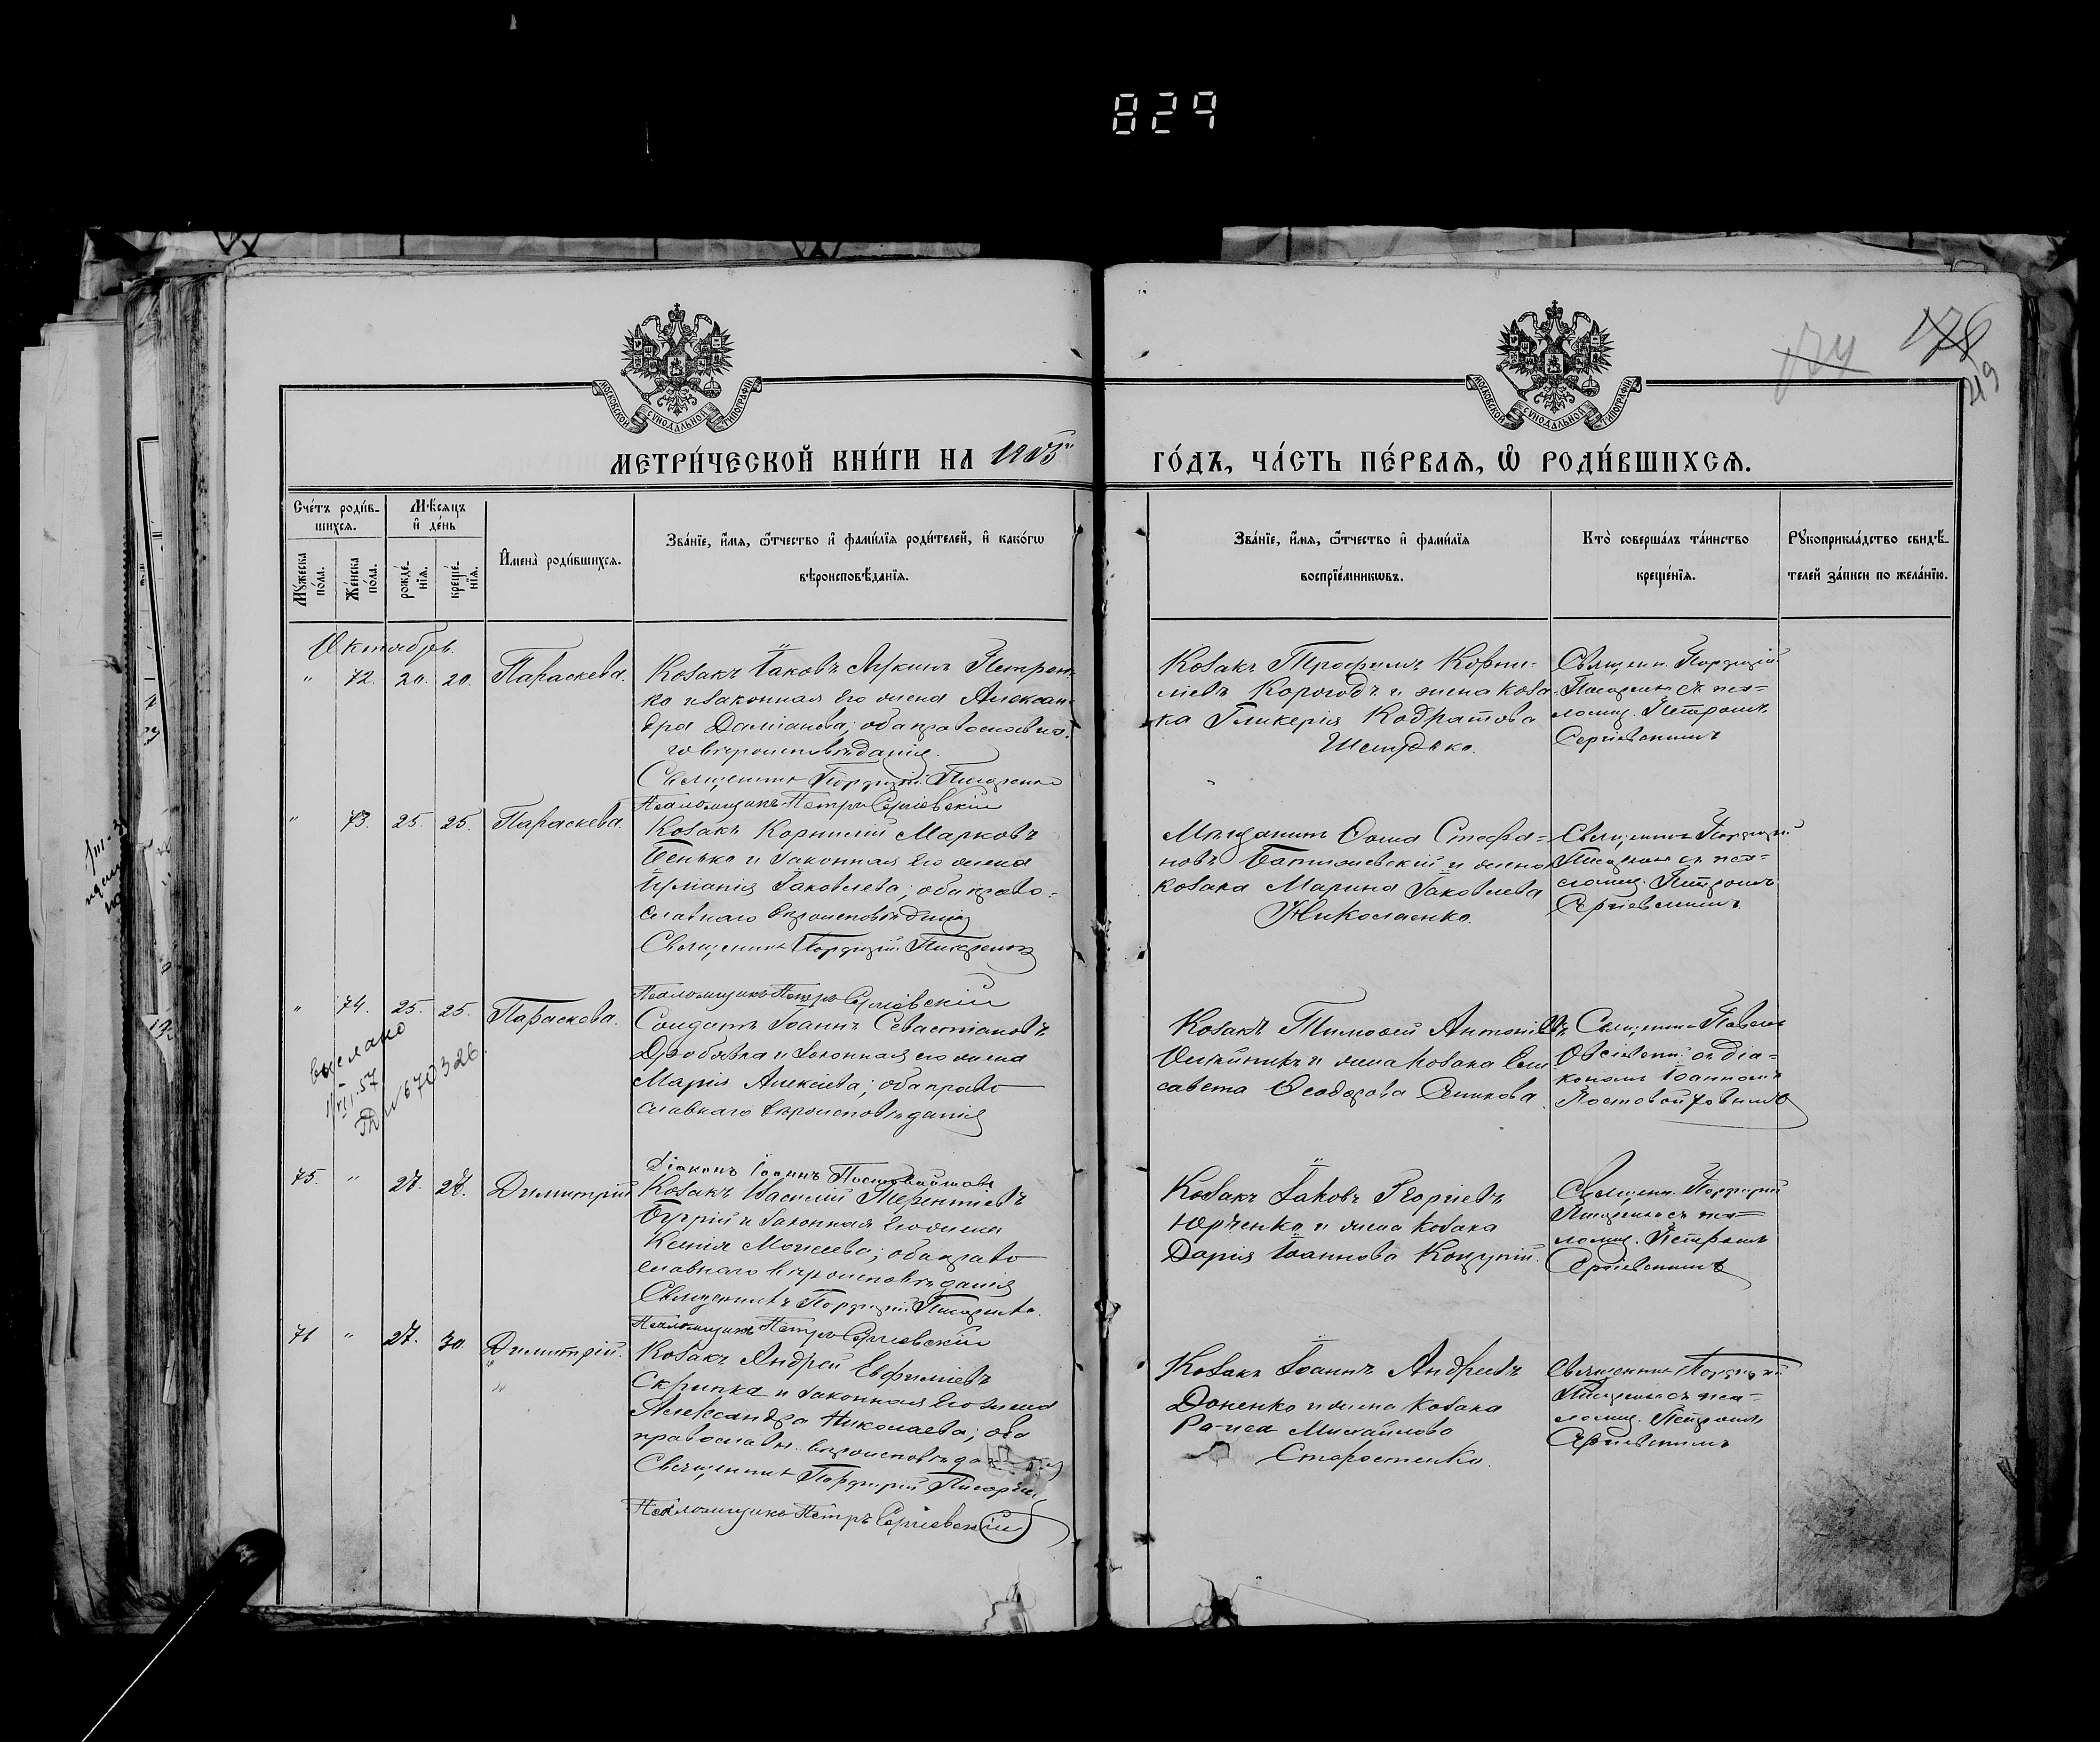 829
174
176
219
МОСКОВСКОЙ СѴНОДАЛЬНОЙ ТИПОГРАФІИ
МОСКОВСКОЙ СѴНОДАЛЬНОЙ ТИПОГРАФІИ
МЕТРИ́ЧЕСКОЙ КНИ́ГИ НА 1903й
ГО́ДЪ, ЧА́СТЬ ПЕ́РВАѦ, Ѽ РОДИ́ВШИХСѦ.
Сче́тъ роди́в-
шихсѧ.
Мꙋ́жеска по́ла.
Же́нска по́ла.
Мѣ́сѧцъ
и҆ де́нь
рожде́-
нїѧ.
креще́-
нїѧ.
И҆мена̀ роди́вшихсѧ.
Зва́нїе, и҆́мѧ, ѻ҆́тчество и҆ фами́лїѧ роди́телей, и҆ како́гѡ
вѣроисповѣ́данїѧ.
Зва́нїе, и҆́мѧ, ѻ҆́тчество и҆ фами́лїѧ
воспрїе́мникѡвъ.
Кто̀ соверша́лъ та́инство
креще́нїѧ.
Рꙋкоприкла́дство свидѣ́-
телей за́писи по жела́нїю.
Октябрь.
" 72. 20. 20. Параскева.
Козакъ Іаковъ Лукинъ Петрен-
ко и законная его жена Алексан-
дра Даміанова; оба православна-
го вѣроисповѣданія.
Священникъ Порфирій Писаренко
Псаломщикъ Петръ Сергіевскій
Козакъ Трофимъ Корни-
ліевъ Корогодъ и жена коза-
ка Гликерія Кодратова
Шемудько.
Священ. Порфирій
Писаренко съ пса-
ломщ. Петромъ
Сергіевскимъ
" 73. 25. 25. Параскева.
Козакъ Корнилій Марковъ
Сенько и законная его жена
Іуліанія Іаковлева; оба право-
славнаго вѣроисповѣданія
Священникъ Порфирій Писаренко
Псаломщикъ Петръ Сергіевскій
Мѣщанинъ Ѳома Стефа-
новъ и жена
козака Марина Іаковлева
Николаенко.
Священникъ Порфирій
Писаренко съ пса-
ломщ. Петромъ
Сергіевскимъ
" 74. 25. 25. Параскева.
выслано
57
№ 670326
Солдатъ Іоаннъ Севастіановъ
Дробязка и законная его жена
Марія Алексіева; оба право-
славнаго вѣроисповѣданія
Діаконъ Іоаннъ
Козакъ Тимоѳей Антоніевъ
Олейникъ и жена козака Ели
савета Ѳеодорова Сеникова.
Священникъ Павелъ
съ діа-
кономъ Іоанномъ
75. " 27. 27. Димитрій
Козакъ Василій Терентіевъ
Бугрій и законная его жена
Ксенія Моисеева; оба право-
славнаго вѣроисповѣданія
Священникъ Порфирій Писаренко.
Псаломщикъ Петръ Сергіевскій
Козакъ Іаковъ Георгіевъ
Юрченко и жена козака
Дарія Іоаннова Коцупій.
Священ. Порфирій
Писаренко съ пса-
ломщ. Петромъ
Сергіевскимъ
76 " 27. 30. Димитрій.
Козакъ Андрей Евфиміевъ
Скрипка и законная его жена
Александра Николаева; оба
православн. вѣроисповѣданія
Священникъ Порфирій Писарен.
Псаломщикъ Петръ Сергіевскій
Козакъ Іоаннъ Андреевъ
Доненко и жена козака
Раиса Михайлова
Старостенко.
Священникъ Порфирій
Писаренко съ пса-
ломщ. Петромъ
Сергіевскимъ